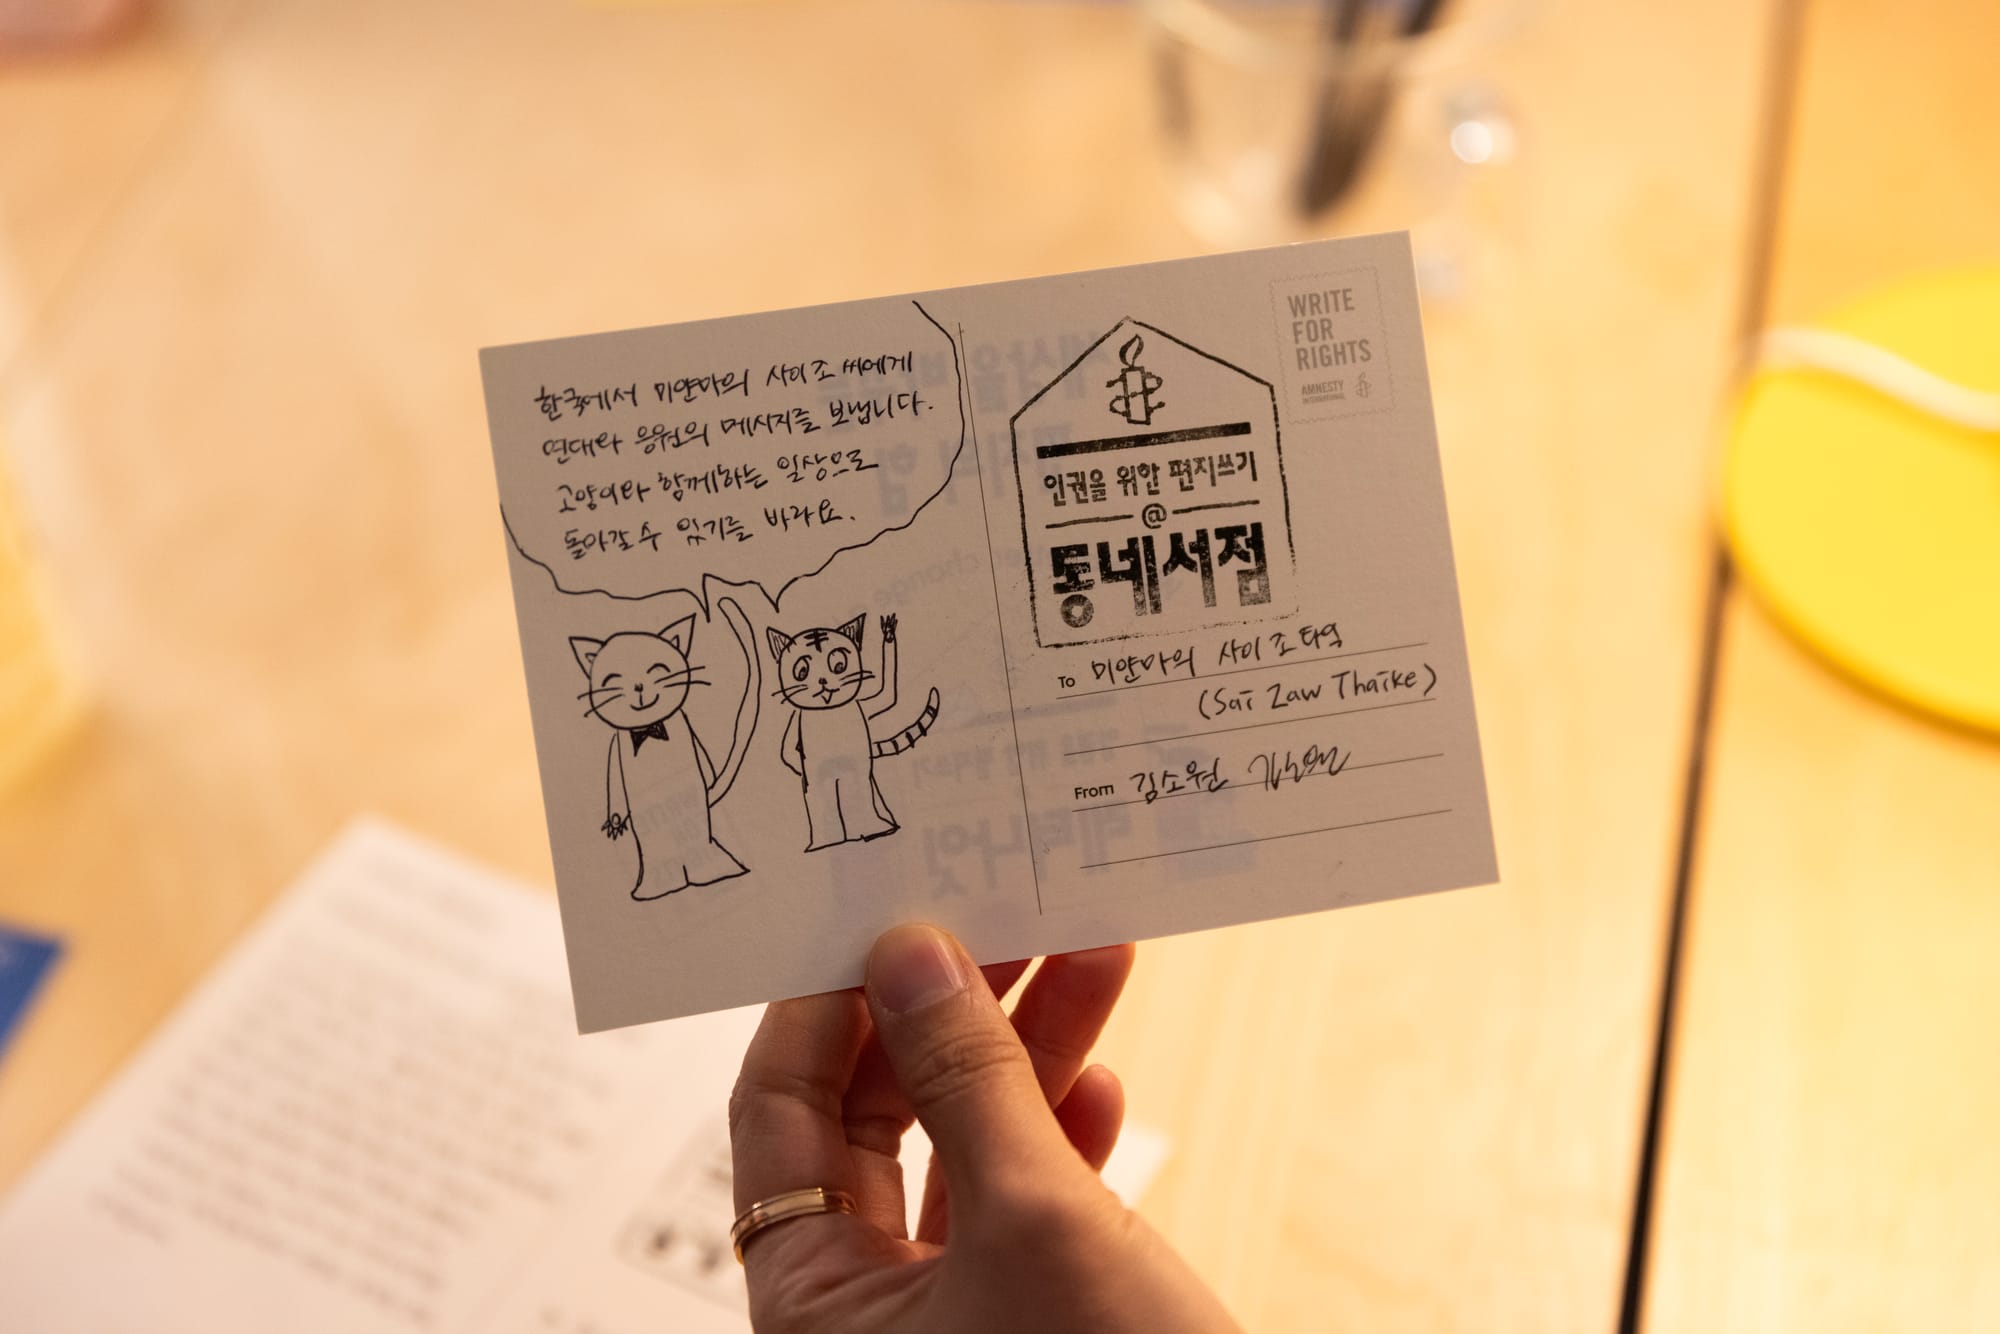 한국에서 미얀마의 사이 조 씨에게
연대와 응원의 메시지를 보냅니다.
고양이와 함께하는 일상으로
돌아갈 수 있기를 바라요.
WRITE
FOR
RIGHTS
AMNESTY
INTERNATIONAL
인권을 위한 편지쓰기
@
동네서점
To 미얀마의 사이 조 타익
(Sai Zaw Thaike)
From 김소원